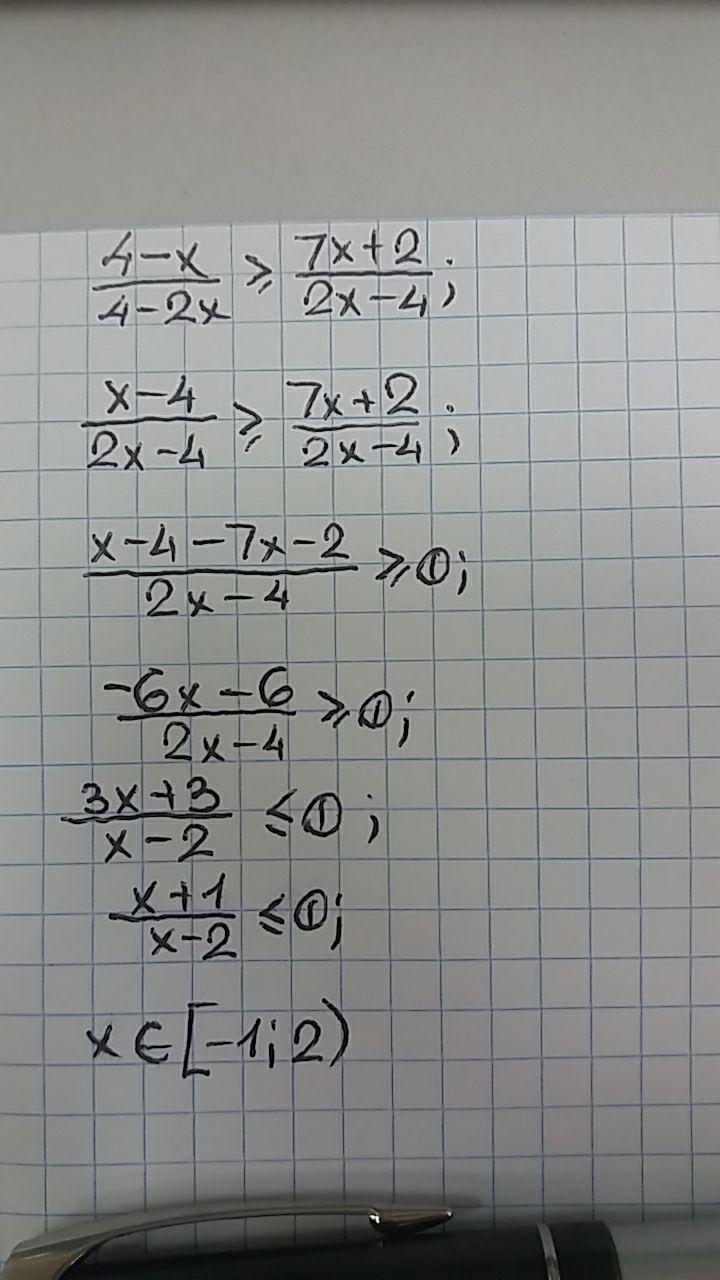 (4-x)/(4-2x) ⩾ (7x+2)/(2x-4);
(x-4)/(2x-4) ⩾ (7x+2)/(2x-4);
(x-4-7x-2)/(2x-4) ⩾ 0;
(-6x-6)/(2x-4) ⩾ 0;
(3x+3)/(x-2) ≤ 0;
(x+1)/(x-2) ≤ 0;
x ∈ [-1; 2)